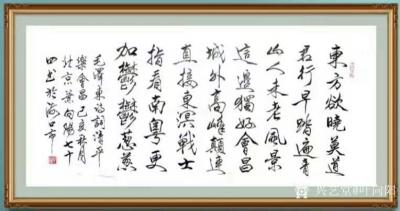 東方欲曉莫道
君行早踏遍青
山人未老風景
這邊獨好會昌
城外高峰顛連
直接東溟戰士
指看南粵更
加鬱鬱蔥蔥
毛澤東詩詞清平
樂會昌己亥秋月
北京葉向陽七十
四書於海口市
兴艺堂@叶向阳